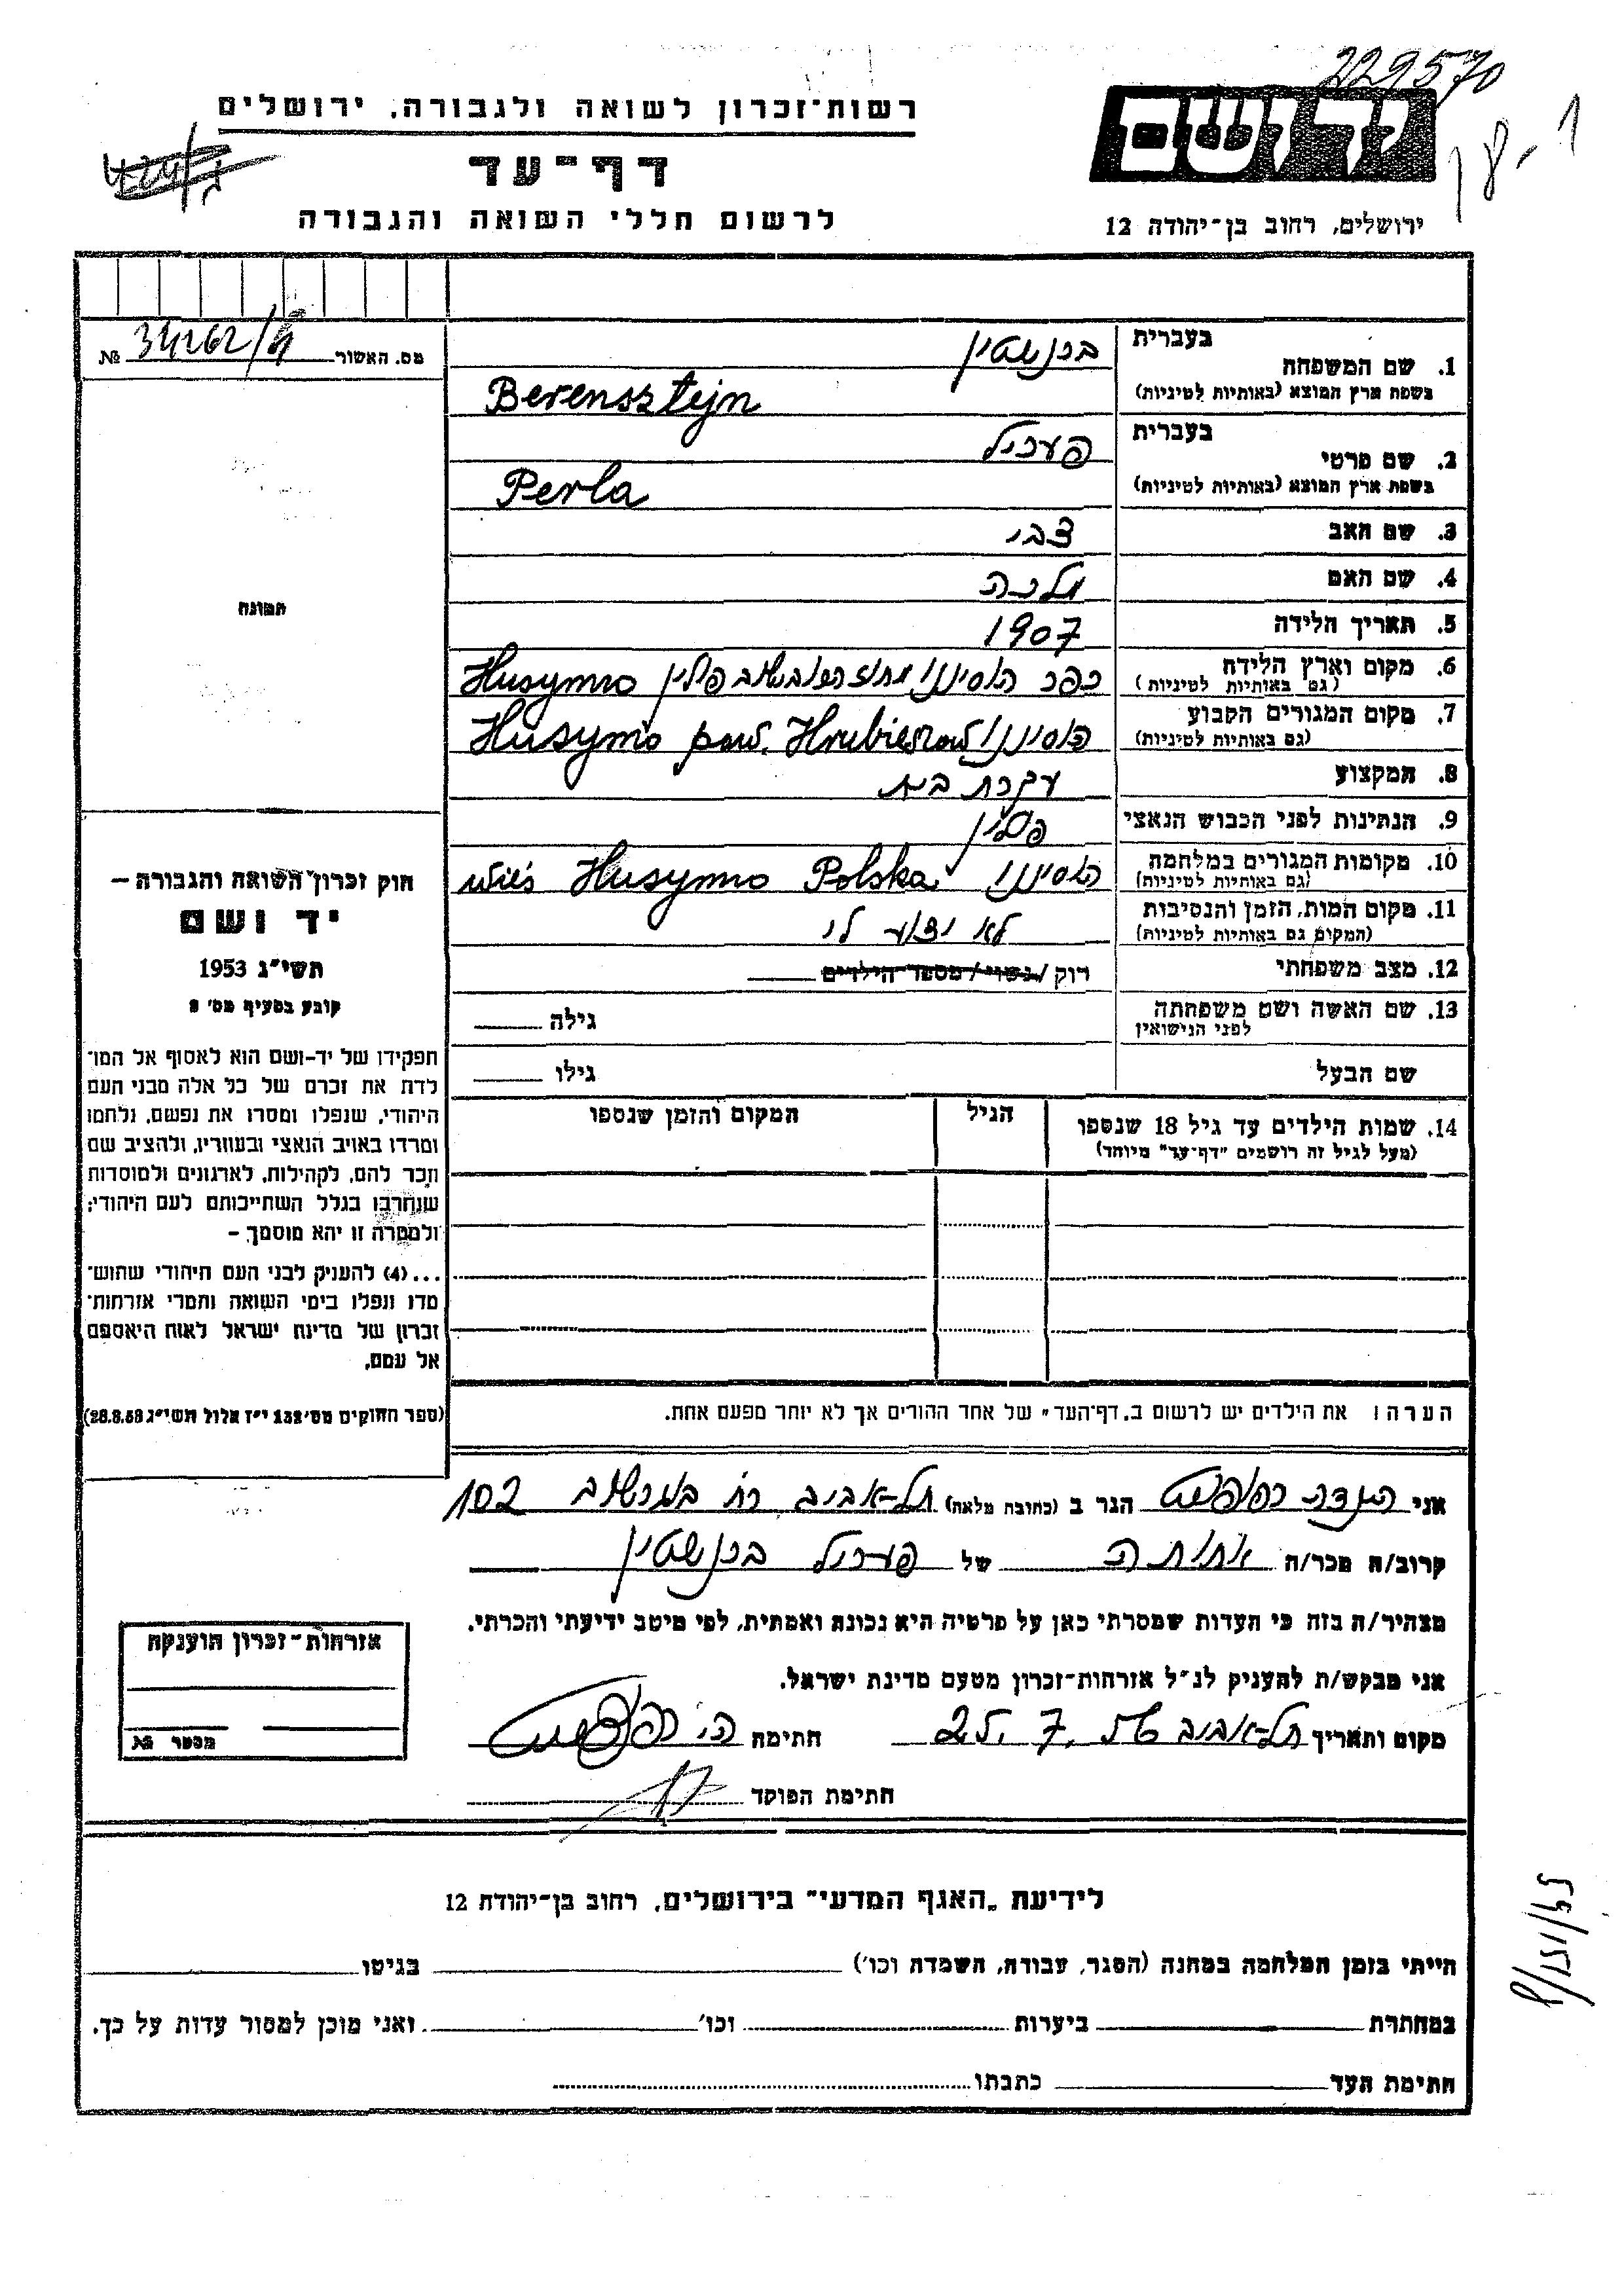 229570
18-1
יד ושם
רשות-זכרון לשואה ולגבורה, ירושלים
דף-עד
לרשום חללי השואה והגבורה
ירושלים, רחוב בן-יהודה 12
מס. האשור № 34262/
1. שם המשפחה בעברית ברנשטין
בשפת ארץ המוצא (באותיות לטיניות) Berensztejn
2. שם פרטי בעברית פעריל
בשפת ארץ המוצא (באותיות לטיניות) Perla
3. שם האב צבי
4. שם האם מלכה
5. תאריך הלידה 1907
6. מקום וארץ הלידה (גם באותיות לטיניות) כפר הוסיננו מחוז הרובשוב פולין Husynno
7. מקום המגורים הקבוע (גם באותיות לטיניות) הוסיננו Husynno pow. Hrubieszow
8. המקצוע עקרת בית
9. הנתינות לפני הכבוש הנאצי פולין
10. מקומות המגורים במלחמה (גם באותיות לטיניות) הוסיננו wieś Husynno Polska
11. מקום המות, הזמן והנסיבות (המקום גם באותיות לטיניות) לא ידוע לי
12. מצב משפחתי רוק / נשוי / מספר הילדים
13. שם האשה ושם משפחתה לפני הנישואין גילה
שם הבעל גילו
14. שמות הילדים עד גיל 18 שנספו הגיל המקום והזמן שנספו
(מעל לגיל זה רושמים "דף-עד" מיוחד)
הערה: את הילדים יש לרשום ב"דף-העד" של אחד ההורים אך לא יותר מפעם אחת.
תמונה
חוק זכרון השואה והגבורה –
יד ושם
תשי"ג 1953
קובע בסעיף מס' 2
תפקידו של יד-ושם הוא לאסוף אל המו-
לדת את זכרם של כל אלה מבני העם
היהודי, שנפלו ומסרו את נפשם, נלחמו
ומרדו באויב הנאצי ובעוזריו, ולהציב שם
וזכר להם, לקהילות, לארגונים ולמוסדות
שנחרבו בגלל השתייכותם לעם היהודי;
ולמטרה זו יהא מוסמך –
...(4) להעניק לבני העם היהודי שהוש-
מדו ונפלו בימי השואה והמרי אזרחות-
זכרון של מדינת ישראל לאות היאספם
אל עמם.
(ספר החוקים מס' 132 י"ז אלול תשי"ג 28.8.53)
אני הינדה הגר ב (כתובת מלאה) תל-אביב רח' 102
קרוב/ה מכר/ה אחותה של פעריל ברנשטין
מצהיר/ה בזה כי העדות שמסרתי כאן על פרטיה היא נכונה ואמתית, לפי מיטב ידיעתי והכרתי.
אני מבקש/ת להעניק לנ"ל אזרחות-זכרון מטעם מדינת ישראל.
מקום ותאריך תל-אביב 25.7. חתימה הי
חתימת הפוקד
אזרחות-זכרון הוענקה
מספר №
לידיעת "האגף המדעי" בירושלים, רחוב בן-יהודה 12
הייתי בזמן המלחמה במחנה (הסגר, עבודה, השמדה וכו') בגיטו
במחתרת ביערות וכו' ואני מוכן למסור עדות על כך.
חתימת העד כתבתו